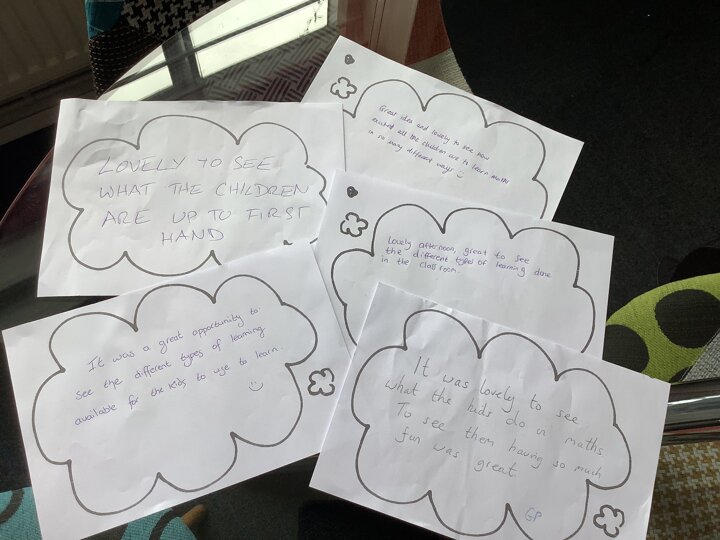 Great idea and lovely to see how
excited all the children are to learn maths
in so many different ways
LOVELY TO SEE
WHAT THE CHILDREN
ARE UP TO FIRST
HAND
Lovely afternoon, great to see
the different types of learning done
in the classroom.
It was a great opportunity to
see the different types of learning
available for the kids to use to learn.
It was lovely to see
what the kids do in maths
To see them having so much
fun was great
GP